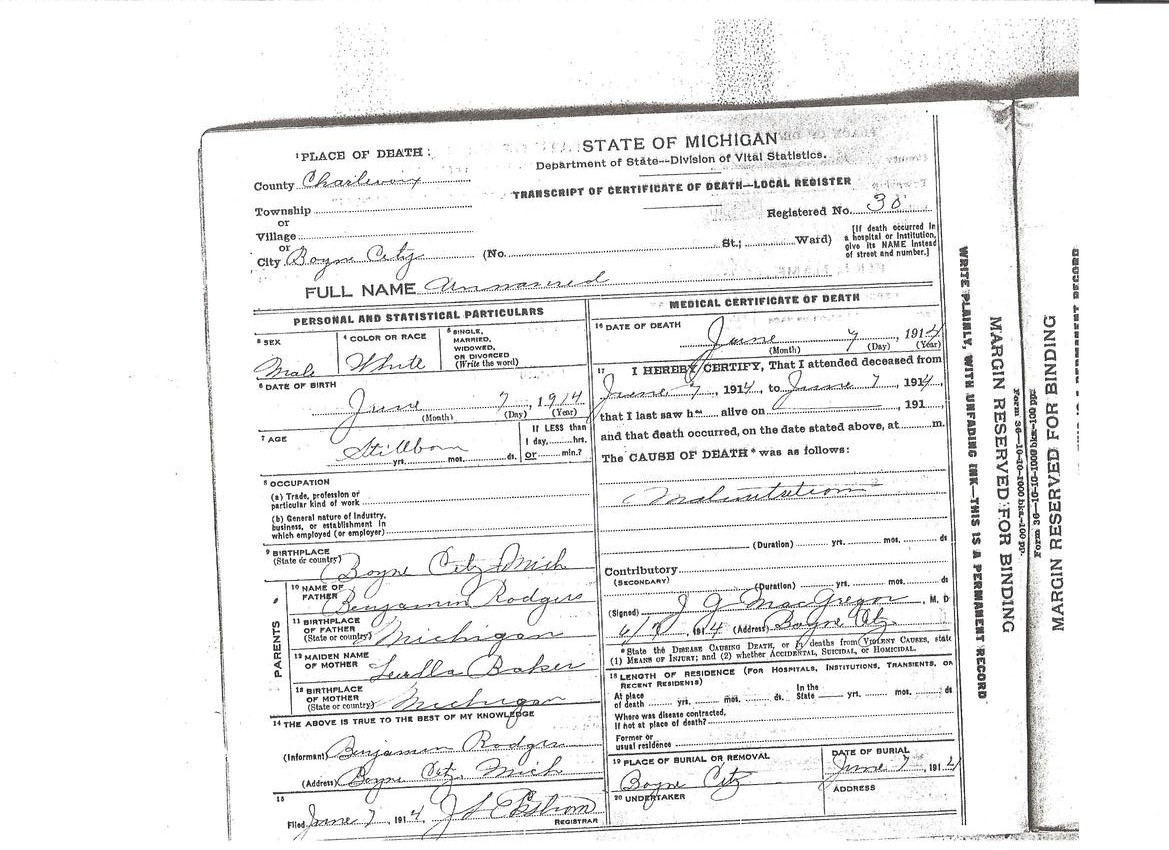 STATE OF MICHIGAN
Department of State--Division of Vital Statistics.
TRANSCRIPT OF CERTIFICATE OF DEATH—LOCAL REGISTER
1 PLACE OF DEATH:
County Charlevoix
Township
or
Village
or
City Boyne City (No. St.; Ward)
Registered No. 30
[If death occurred in
a hospital or institution,
give its NAME instead
of street and number.]
FULL NAME Unnamed
PERSONAL AND STATISTICAL PARTICULARS
3 SEX
Male
4 COLOR OR RACE
White
5 SINGLE,
MARRIED,
WIDOWED,
OR DIVORCED
(Write the word)
6 DATE OF BIRTH
June 7, 1914
(Month) (Day) (Year)
7 AGE
Stillborn
yrs. mos. ds.
If LESS than
1 day, hrs.
or min.?
8 OCCUPATION
(a) Trade, profession or
particular kind of work
(b) General nature of industry,
business, or establishment in
which employed (or employer)
9 BIRTHPLACE
(State or country)
Boyne City Mich
PARENTS
10 NAME OF
FATHER
Benjamin Rodgers
11 BIRTHPLACE
OF FATHER
(State or country)
Michigan
12 MAIDEN NAME
OF MOTHER
Luella Baker
13 BIRTHPLACE
OF MOTHER
(State or country)
Michigan
14 THE ABOVE IS TRUE TO THE BEST OF MY KNOWLEDGE
(Informant) Benjamin Rodgers
(Address) Boyne City, Mich
15
Filed June 7, 1914, J L Ekstrom
REGISTRAR
MEDICAL CERTIFICATE OF DEATH
16 DATE OF DEATH
June 7, 1914
(Month) (Day) (Year)
17 I HEREBY CERTIFY, That I attended deceased from
June 7, 1914, to June 7, 1914,
that I last saw h alive on 191
and that death occurred, on the date stated above, at m.
The CAUSE OF DEATH* was as follows:
(Duration) yrs. mos. ds
Contributory
(SECONDARY)
(Duration) yrs. mos. ds
(Signed) J G MacGregor, M. D
6/7, 1914 (Address) Boyne City
*State the DISEASE CAUSING DEATH, or in deaths from VIOLENT CAUSES, state
(1) MEANS OF INJURY; and (2) whether ACCIDENTAL, SUICIDAL, OR HOMICIDAL.
18 LENGTH OF RESIDENCE (FOR HOSPITALS, INSTITUTIONS, TRANSIENTS, OR
RECENT RESIDENTS)
At place
of death yrs. mos. ds.
In the
State yrs. mos. ds
Where was disease contracted,
If not at place of death?
Former or
usual residence
19 PLACE OF BURIAL OR REMOVAL
Boyne City
DATE OF BURIAL
June 7, 1914
20 UNDERTAKER
ADDRESS
WRITE PLAINLY, WITH UNFADING INK—THIS IS A PERMANENT RECORD
MARGIN RESERVED FOR BINDING
Form 36—10-10-1000 bks-100 pp.
Form 36—10-10-1000 bks-100 pp.
MARGIN RESERVED FOR BINDING